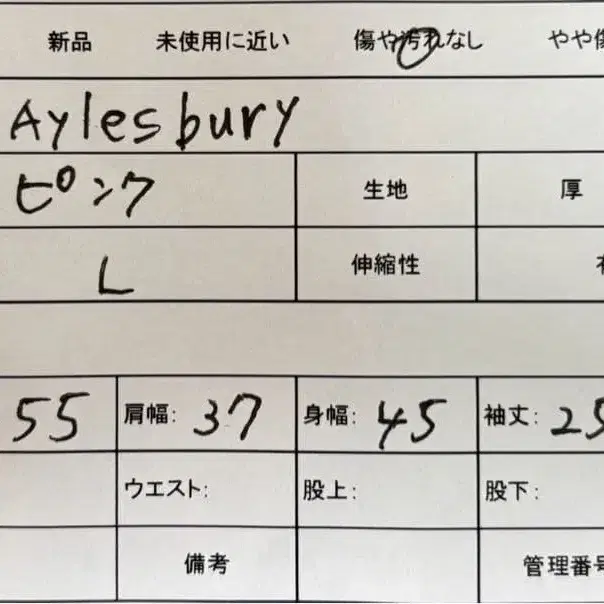 新品 未使用に近い 傷や汚れなし やや傷
Aylesbury
ピンク 生地 厚
L 伸縮性
55 肩幅: 37 身幅: 45 袖丈: 25
ウエスト: 股上: 股下:
備考 管理番号